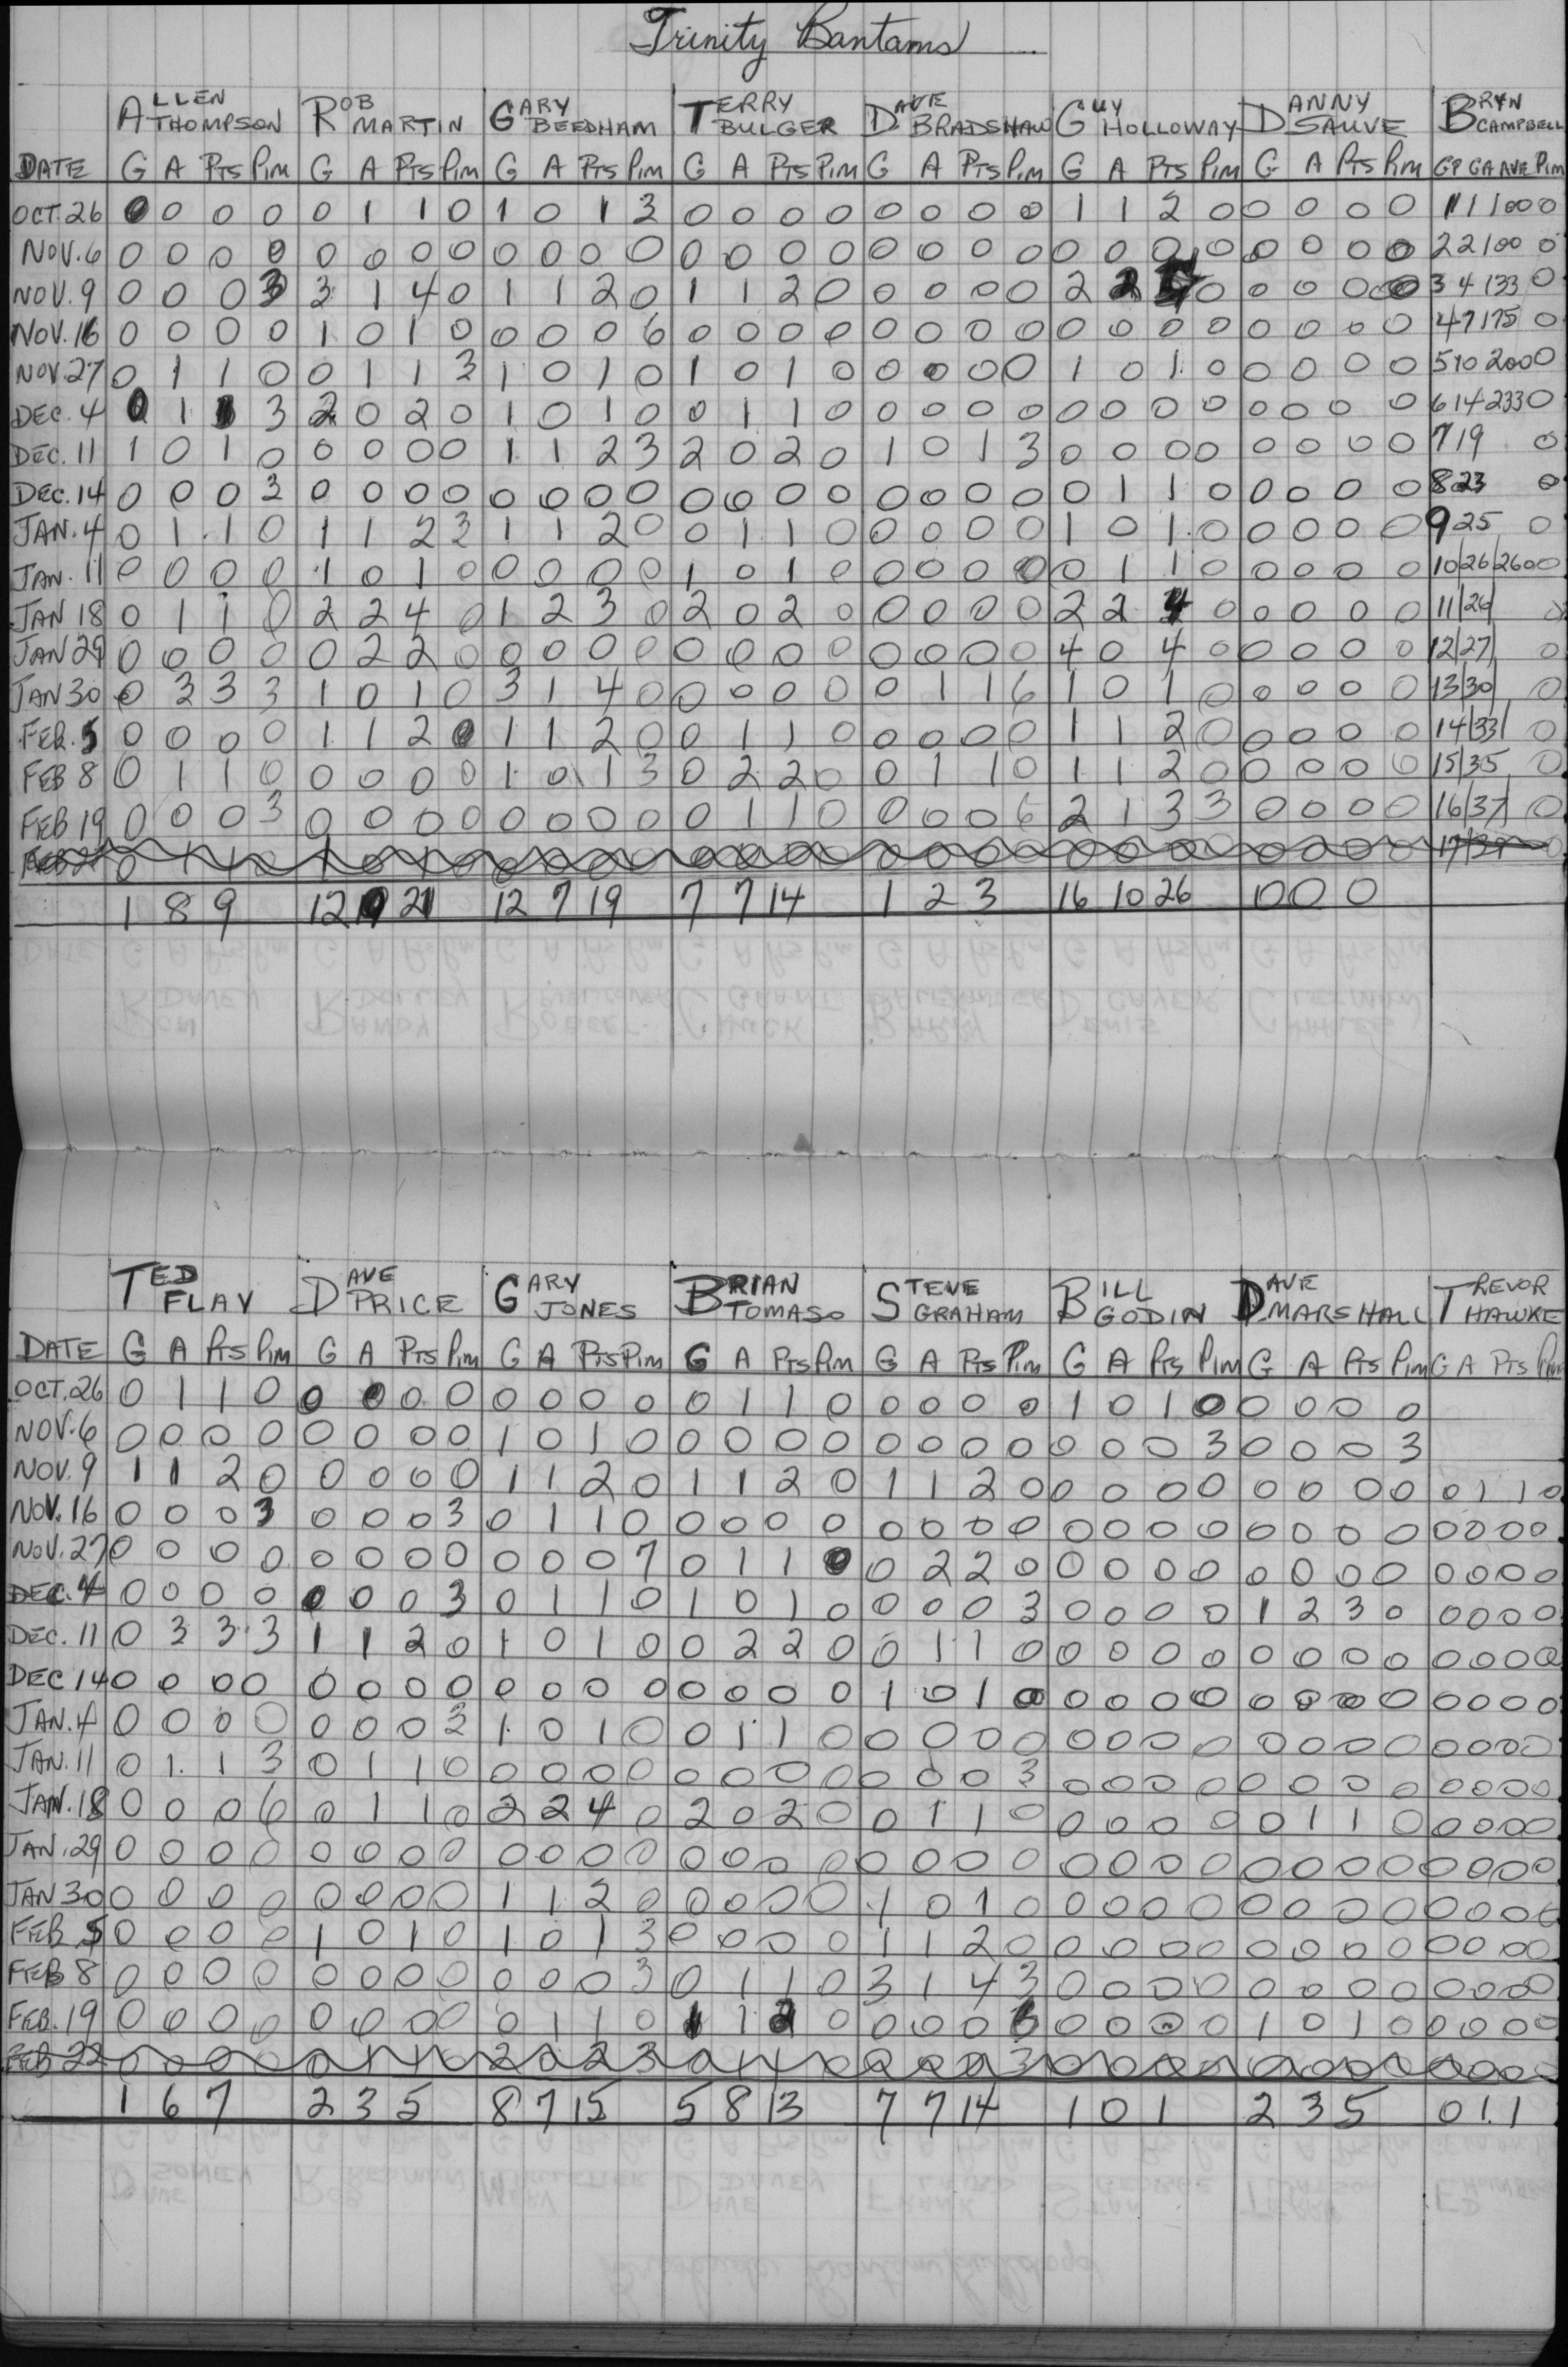 Trinity Bantams
ALLEN THOMPSON ROB MARTIN GARY BEEDHAM TERRY BULGER DAVE BRADSHAW GUY HOLLOWAY DANNY SAUVE BRYN CAMPBELL
DATE G A PTS PIM G A PTS PIM G A PTS PIM G A PTS PIM G A PTS PIM G A PTS PIM G A PTS PIM GP GA AVE PIM
OCT. 26 0 0 0 0 0 1 1 0 1 0 1 3 0 0 0 0 0 0 0 0 1 1 2 0 0 0 0 0 1 1 100 0
NOV. 6 0 0 0 0 0 0 0 0 0 0 0 0 0 0 0 0 0 0 0 0 0 0 0 0 0 0 0 0 2 2 100 0
NOV. 9 0 0 0 3 3 1 4 0 1 1 2 0 1 1 2 0 0 0 0 0 2 2 4 0 0 0 0 0 3 4 133 0
NOV. 16 0 0 0 0 1 0 1 0 0 0 0 6 0 0 0 0 0 0 0 0 0 0 0 0 0 0 0 0 4 7 175 0
NOV. 27 0 1 1 0 0 1 1 3 1 0 1 0 1 0 1 0 0 0 0 0 1 0 1 0 0 0 0 0 5 10 200 0
DEC. 4 0 1 1 3 2 0 2 0 1 0 1 0 0 1 1 0 0 0 0 0 0 0 0 0 0 0 0 0 6 14 233 0
DEC. 11 1 0 1 0 0 0 0 0 1 1 2 3 2 0 2 0 1 0 1 3 0 0 0 0 0 0 0 0 7 19 0
DEC. 14 0 0 0 3 0 0 0 0 0 0 0 0 0 0 0 0 0 0 0 0 0 1 1 0 0 0 0 0 8 23 0
JAN. 4 0 1 1 0 1 1 2 3 1 1 2 0 0 1 1 0 0 0 0 0 1 0 1 0 0 0 0 0 9 25 0
JAN. 11 0 0 0 0 1 0 1 0 0 0 0 0 1 0 1 0 0 0 0 0 0 1 1 0 0 0 0 0 10/26/260 0
JAN 18 0 1 1 0 2 2 4 0 1 2 3 0 2 0 2 0 0 0 0 0 2 2 4 0 0 0 0 0 11/26/ 0
JAN 29 0 0 0 0 0 2 2 0 0 0 0 0 0 0 0 0 0 0 0 0 4 0 4 0 0 0 0 0 12/27/ 0
JAN 30 0 3 3 3 1 0 1 0 3 1 4 0 0 0 0 0 0 1 1 6 1 0 1 0 0 0 0 0 13/30/ 0
FEB. 5 0 0 0 0 1 1 2 0 1 1 2 0 0 1 1 0 0 0 0 0 1 1 2 0 0 0 0 0 14/33/ 0
FEB 8 0 1 1 0 0 0 0 0 1 0 1 3 0 2 2 0 0 1 1 0 1 1 2 0 0 0 0 0 15/35 0
FEB 19 0 0 0 3 0 0 0 0 0 0 0 0 0 1 1 0 0 0 0 6 2 1 3 3 0 0 0 0 16/37/ 0
0 1 1 0 1 0 1 0 0 0 0 0 0 0 0 0 0 0 0 0 0 0 0 0 0 0 0 0
1 8 9 12 21 12 7 19 7 7 14 1 2 3 16 10 26 0 0 0
TED FLAY DAVE PRICE GARY JONES BRIAN TOMASO STEVE GRAHAM BILL GODIN DAVE MARSHALL TREVOR HAWKE
DATE G A PTS PIM G A PTS PIM G A PTS PIM G A PTS PIM G A PTS PIM G A PTS PIM G A PTS PIM G A PTS PIM
OCT. 26 0 1 1 0 0 0 0 0 0 0 0 0 0 1 1 0 0 0 0 0 1 0 1 0 0 0 0 0
NOV. 6 0 0 0 0 0 0 0 0 1 0 1 0 0 0 0 0 0 0 0 0 0 0 0 3 0 0 0 3
NOV. 9 1 1 2 0 0 0 0 0 1 1 2 0 1 1 2 0 1 1 2 0 0 0 0 0 0 0 0 0 0 1 1 0
NOV. 16 0 0 0 3 0 0 0 3 0 1 1 0 0 0 0 0 0 0 0 0 0 0 0 0 0 0 0 0 0 0 0 0
NOV. 27 0 0 0 0 0 0 0 0 0 0 0 7 0 1 1 0 0 2 2 0 0 0 0 0 0 0 0 0 0 0 0 0
DEC. 4 0 0 0 0 0 0 0 3 0 1 1 0 1 0 1 0 0 0 0 3 0 0 0 0 1 2 3 0 0 0 0 0
DEC. 11 0 3 3 3 1 1 2 0 1 0 1 0 0 2 2 0 0 1 1 0 0 0 0 0 0 0 0 0 0 0 0 0
DEC 14 0 0 0 0 0 0 0 0 0 0 0 0 0 0 0 0 1 0 1 0 0 0 0 0 0 0 0 0 0 0 0 0
JAN. 4 0 0 0 0 0 0 0 3 1 0 1 0 0 1 1 0 0 0 0 0 0 0 0 0 0 0 0 0 0 0 0 0
JAN. 11 0 1 1 3 0 1 1 0 0 0 0 0 0 0 0 0 0 0 0 3 0 0 0 0 0 0 0 0 0 0 0 0
JAN. 18 0 0 0 6 0 1 1 0 2 2 4 0 2 0 2 0 0 1 1 0 0 0 0 0 0 1 1 0 0 0 0 0
JAN. 29 0 0 0 0 0 0 0 0 0 0 0 0 0 0 0 0 0 0 0 0 0 0 0 0 0 0 0 0 0 0 0 0
JAN 30 0 0 0 0 0 0 0 0 1 1 2 0 0 0 0 0 1 0 1 0 0 0 0 0 0 0 0 0 0 0 0 0
FEB 5 0 0 0 0 1 0 1 0 1 0 1 3 0 0 0 0 1 1 2 0 0 0 0 0 0 0 0 0 0 0 0 0
FEB 8 0 0 0 0 0 0 0 0 0 0 0 3 0 1 1 0 3 1 4 3 0 0 0 0 0 0 0 0 0 0 0 0
FEB. 19 0 0 0 0 0 0 0 0 0 1 1 0 1 1 2 0 0 0 0 0 0 0 0 1 0 1 0 0 0 0 0
FEB 22 0 0 0 0 0 1 1 0 2 0 2 3 0 1 1 0 0 0 0 3 0 0 0 0 0 0 0 0 0 0 0 0
1 6 7 2 3 5 8 7 15 5 8 13 7 7 14 1 0 1 2 3 5 0 1 1